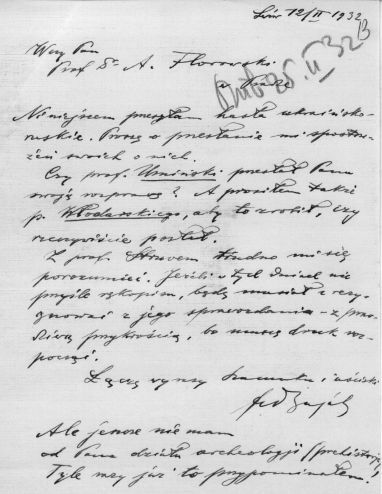 Lwów 12/II 1932
Wny Pan
Prof. Dr A. Florovski
w Pradze
Niniejszem przesyłam hasła ukraińsko-
ruskie. Proszę o przesłanie mi spostrze-
żeń swoich o nich.
Czy prof. Umiński przesłał Panu
swoją rozprawę? A prosiłem także
p. Włodarskiego, aby to zrobił, czy
rzeczywiście posłał.
Z prof. Struvem trudno mi się
porozumieć. Jeżeli w tych dniach nie
przyśle rękopisu, będę musiał zrezy-
gnować z jego sprawozdania - z praw-
dziwą przykrością, bo muszę druk roz-
począć.
Łączę wyrazy szacunku i uściski
Ale jeszcze nie mam
od Pana działu archeologji (prehistorji)
Tyle razy już to przypominałem!